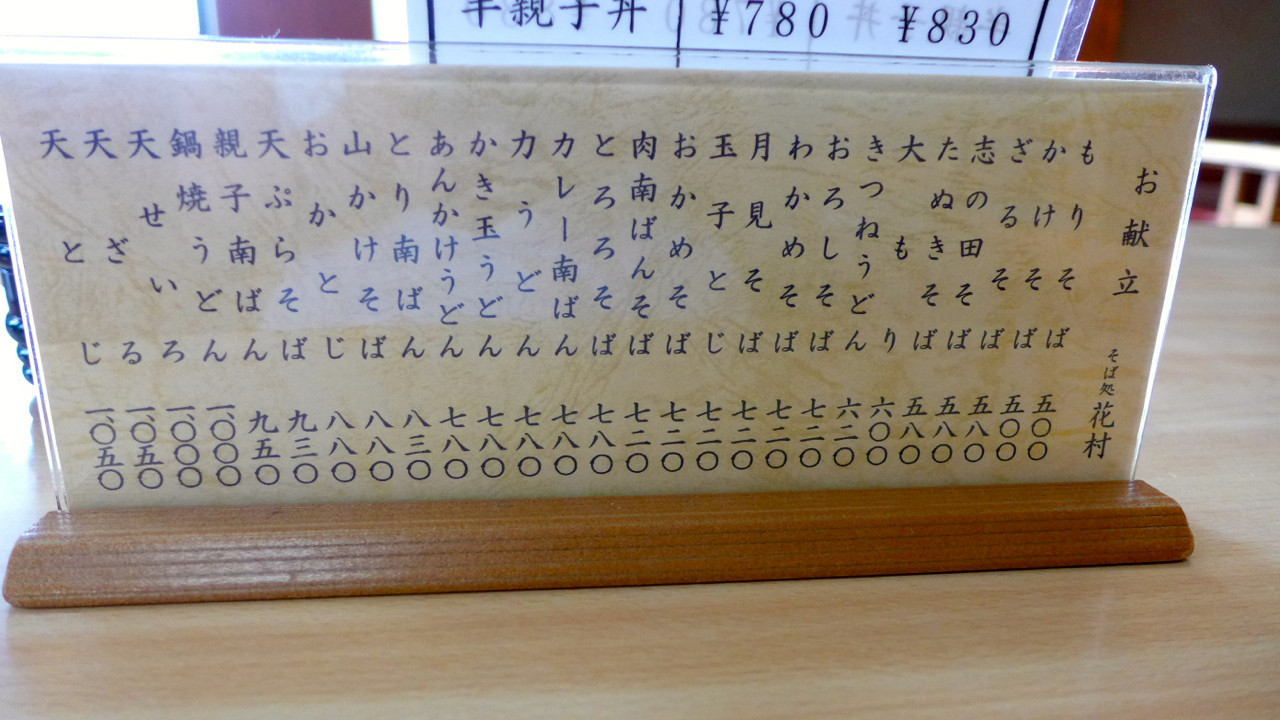 半親子丼 ¥780 ¥830
お献立
そば処 花村
もりそば 五〇〇
かけそば 五〇〇
ざるそば 五八〇
志の田そば 五八〇
たぬきそば 五八〇
大もり 六〇〇
きつねうどん 六二〇
おろしそば 七二〇
わかめそば 七二〇
月見そば 七二〇
玉子とじ 七二〇
おかめそば 七二〇
肉南ばんそば 七二〇
とろろそば 七八〇
カレー南ばん 七八〇
力うどん 七八〇
かき玉うどん 七八〇
あんかけうどん 七八〇
とり南ばん 八三〇
山かけそば 八八〇
おかとじ 八八〇
天ぷらそば 九三〇
親子南ばん 九五〇
鍋焼うどん 一、〇〇〇
天せいろ 一、〇〇〇
天ざる 一、〇五〇
天とじ 一、〇五〇